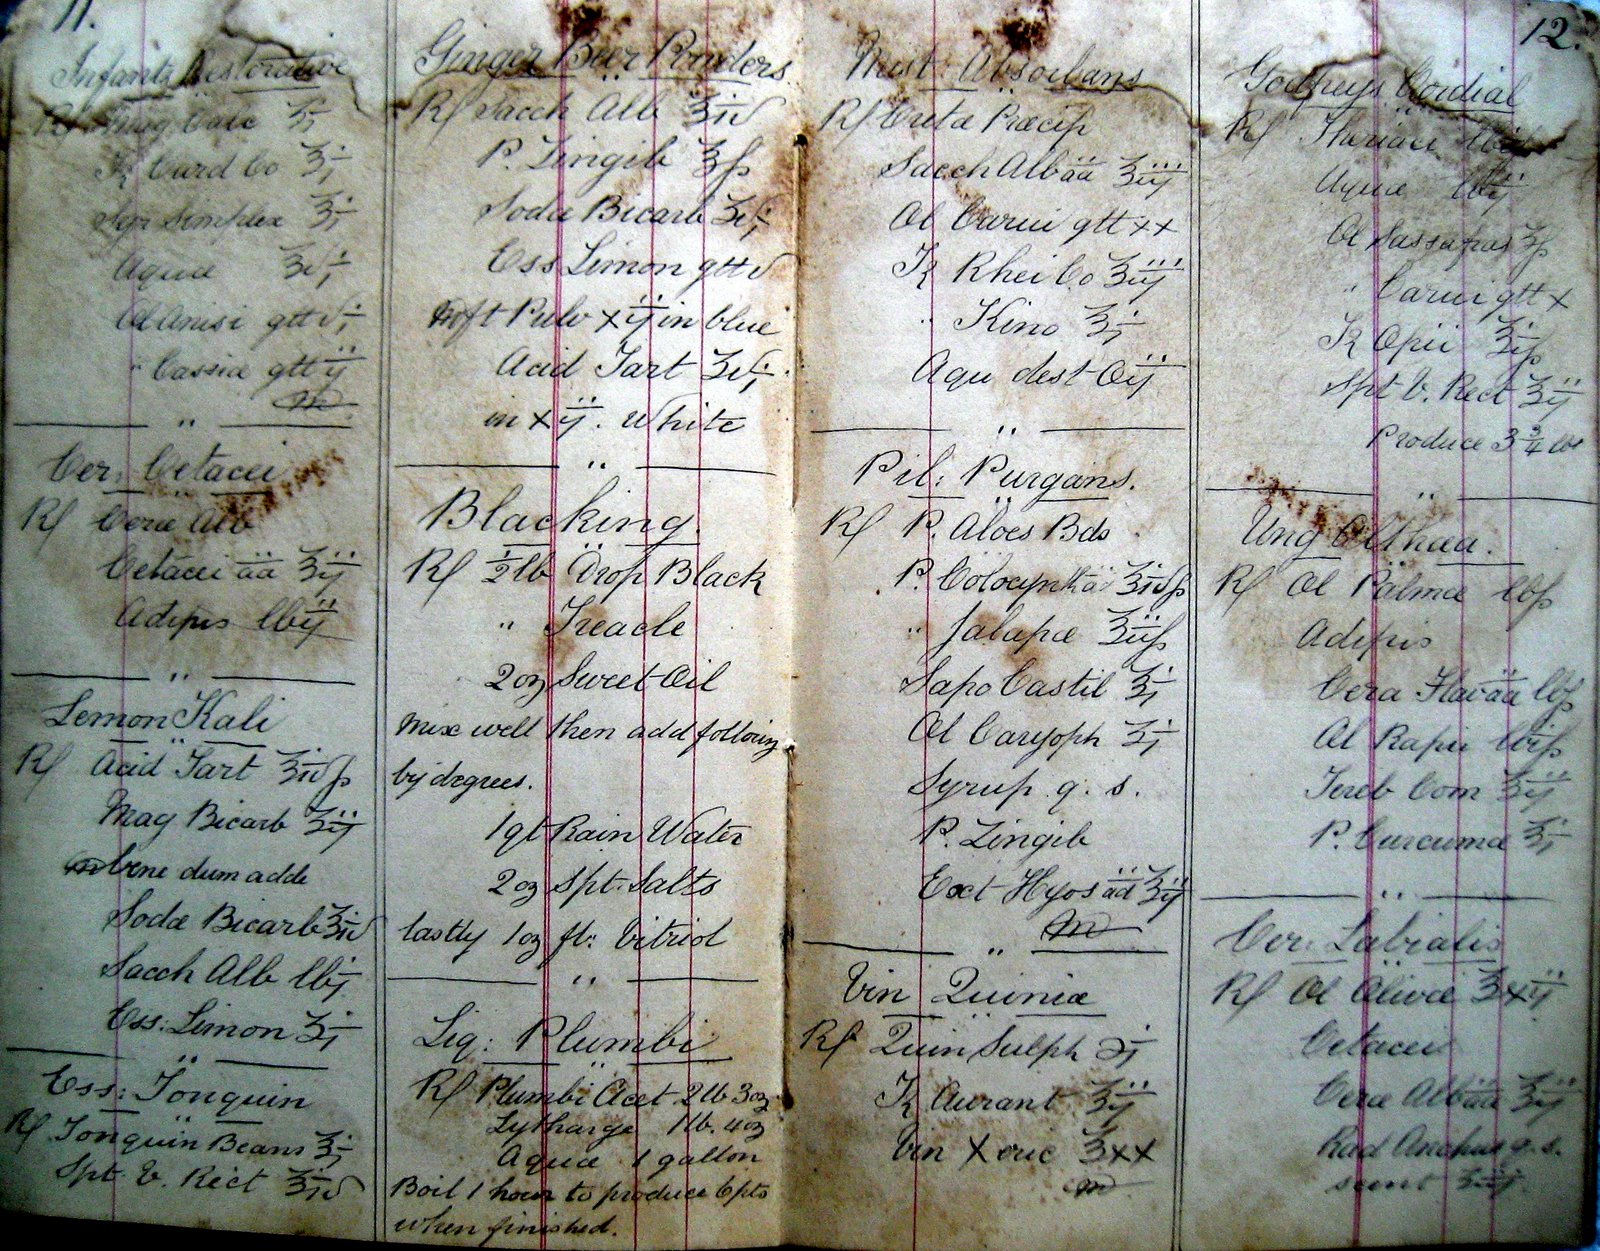 11.
Infants Restorative
Rx Mag Calc ʒj
Tr Card Co ʒj
Syr Simplex ʒj
Aquae ʒvj
Ol Anisi gtt vj
" Cassiae gtt ij
m
"
Cer: Cetacei
Rx Cerae Alb
Cetacei aa ʒij
Adipis lbij
"
Lemon Kali
Rx Acid Tart ʒivſs
Mag Bicarb ʒij
m bene dum adde
Sodae Bicarb ʒiv
Sacch Alb lbj
Ess: Limon ʒj
"
Ess: Tonquin
Rx Tonquin Beans ʒj
Spt. V. Rect ʒiv
Ginger Beer Powders
Rx Sacch Alb ʒiv
P. Zingib ʒſs
Sodae Bicarb ʒvj
Ess Limon gtt v
ft Pulv xij in blue
Acid Tart ʒvj.
in xij. White
"
Blacking.
Rx ½ lb Drop Black
" Treacle
2 oz Sweet Oil
Mix well then add following
by degrees.
1 qt Rain Water
2 oz Spt. Salts
lastly 1 oz fl: Vitriol
"
Liq: Plumbi
Rx Plumbi Acet 2 lb 3 oz
Lytharge 1 lb. 4 oz
Aquae 1 gallon
Boil 1 hour to produce 6 pts
when finished.
Mist Absorbans
Rx Creta Praecip
Sacch Alb aa ʒiij
Ol Carui gtt xx
Tr Rhei Co ʒiij
" Kino ʒj
Aqu dest Oij
"
Pil: Purgans.
Rx P. Aloes Bds
P. Colocynth aa ʒivſs
" Jalapae ʒiiſs
Sapo Castil ʒj
Ol Caryoph ʒj
Syrup q. s.
P. Zingib
Ext Hyos aa ʒij
m
"
Vin Quiniae
Rx Quin Sulph ℈j
Tr Aurant ʒij
Vin Xeric ʒxx
m
12.
Godfreys Cordial
Rx Theriaci
Aquae lbij
Ol Sassafras ʒſs
" Carui gtt x
Tr Opii ʒiſs
Spt V. Rect ʒij
Produce 3 ¾ lbs
"
Ung Althaea.
Rx Ol Palmae lbſs
Adipis
Cera Flav aa lbſs
Ol Rapii lbiſs
Tereb Com ʒij
P. Curcumae ʒj
"
Cer: Labialis
Rx Ol Olivae ʒxij
Cetacei
Cerae Alb aa ʒij
Rad Anchus q. s.